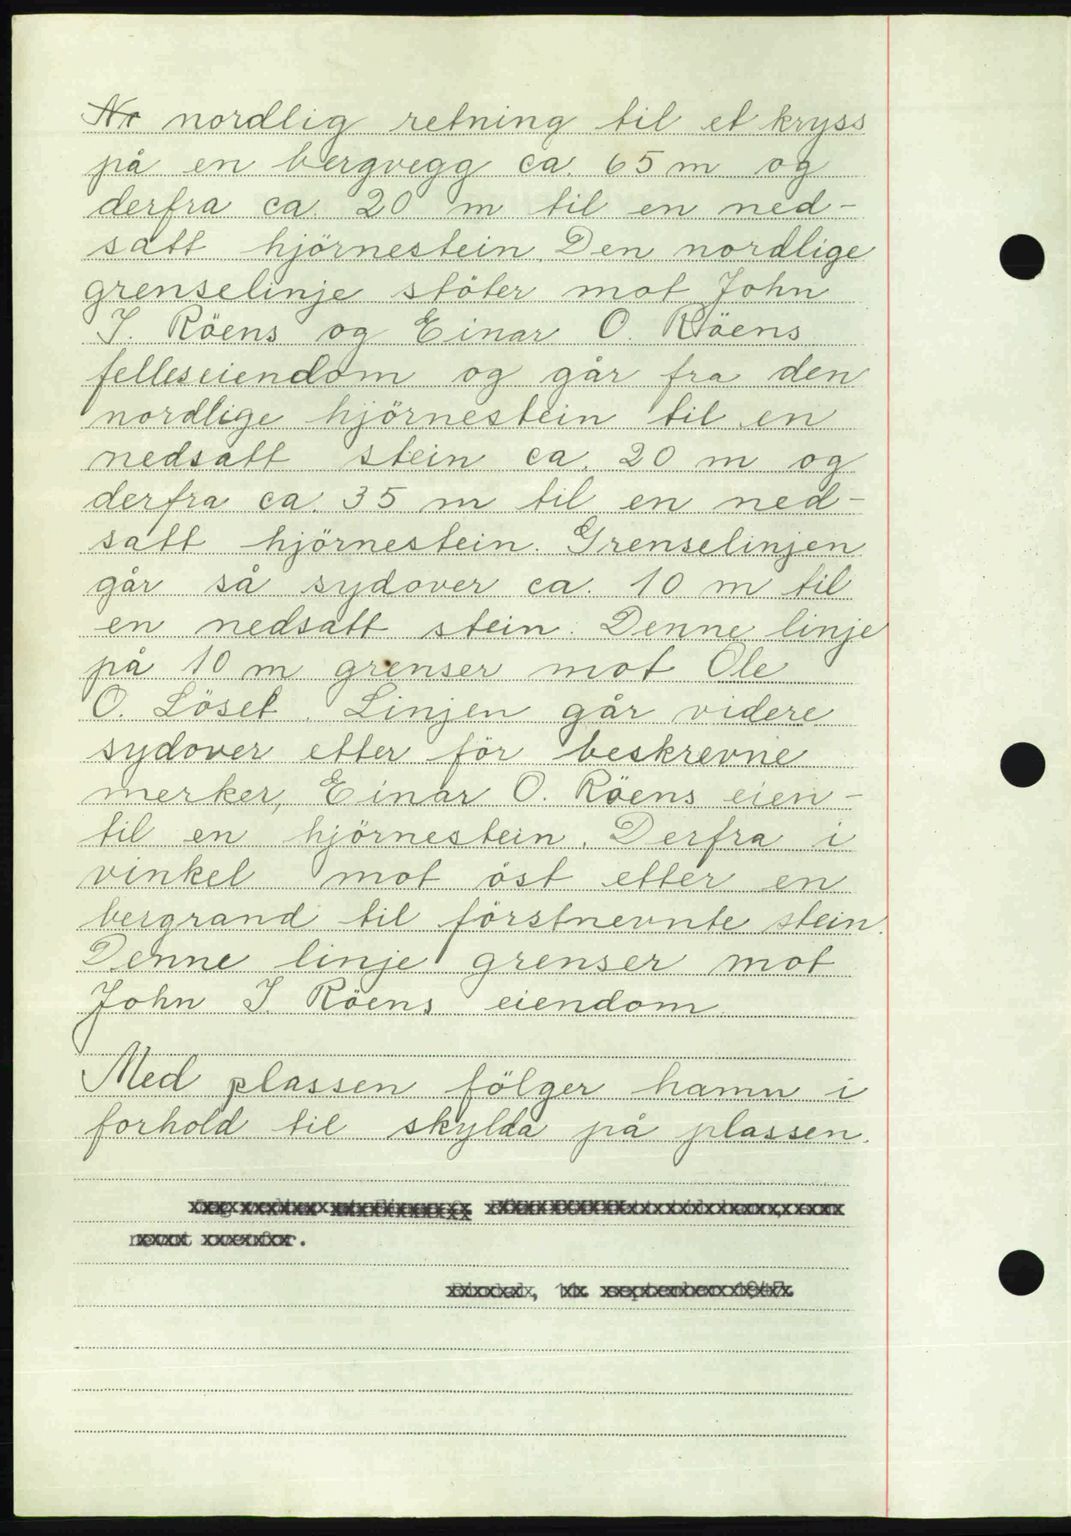 nordlig retning til et kryss
på en bergvegg ca. 65 m og
derfra ca. 20 m til en ned-
satt hjörnestein. Den nordlige
grenselinje stöter mot John
I. Röens og Einar O. Röens
felleseiendom og går fra den
nordlige hjörnestein til en
nedsatt stein ca. 20 m og
derfra ca. 35 m til en ned-
satt hjörnestein. Grenselinjen
går så sydover ca. 10 m til
en nedsatt stein. Denne linje
på 10 m grenser mot Ole
O. Löset. Linjen går videre
sydover etter för beskrevne
merker, Einar O. Röens eien-
til en hjörnestein. Derfra i
vinkel mot öst etter en
bergrand til förstnevnte stein.
Denne linje grenser mot
John I. Röens eiendom
Med plassen fölger hamn i
forhold til skylda på plassen.